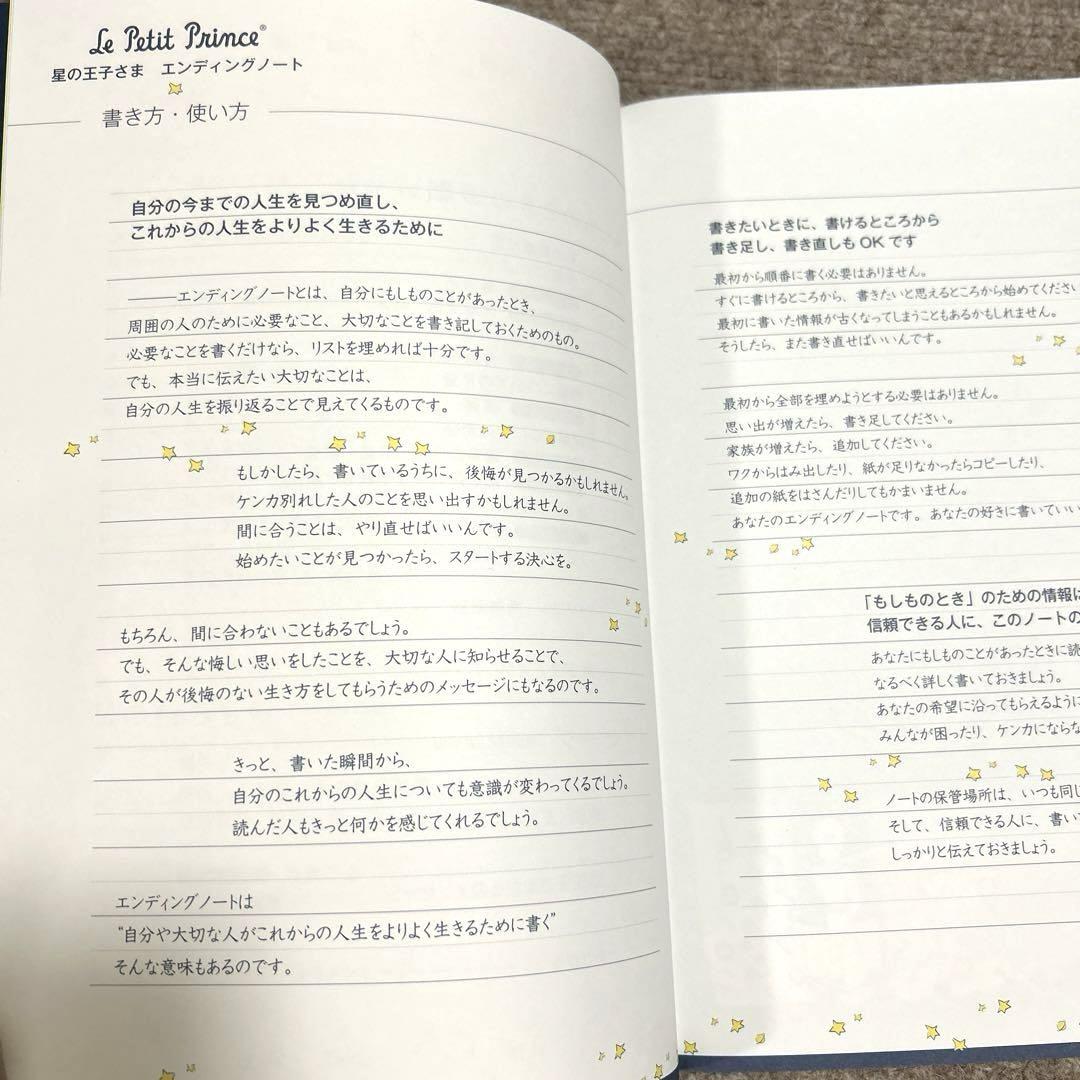 Le Petit Prince®
星の王子さま　エンディングノート
書き方・使い方
自分の今までの人生を見つめ直し、
これからの人生をよりよく生きるために
―――エンディングノートとは、自分にもしものことがあったとき、
周囲の人のために必要なこと、大切なことを書き記しておくためのもの。
必要なことを書くだけなら、リストを埋めれば十分です。
でも、本当に伝えたい大切なことは、
自分の人生を振り返ることで見えてくるものです。
もしかしたら、書いているうちに、後悔が見つかるかもしれません。
ケンカ別れした人のことを思い出すかもしれません。
間に合うことは、やり直せばいいんです。
始めたいことが見つかったら、スタートする決心を。
もちろん、間に合わないこともあるでしょう。
でも、そんな悔しい思いをしたことを、大切な人に知らせることで、
その人が後悔のない生き方をしてもらうためのメッセージにもなるのです。
きっと、書いた瞬間から、
自分のこれからの人生についても意識が変わってくるでしょう。
読んだ人もきっと何かを感じてくれるでしょう。
エンディングノートは
“自分や大切な人がこれからの人生をよりよく生きるために書く”
そんな意味もあるのです。
書きたいときに、書けるところから
書き足し、書き直しもOKです
最初から順番に書く必要はありません。
すぐに書けるところから、書きたいと思えるところから始めてください
最初に書いた情報が古くなってしまうこともあるかもしれません。
そうしたら、また書き直せばいいんです。
最初から全部を埋めようとする必要はありません。
思い出が増えたら、書き足してください。
家族が増えたら、追加してください。
ワクからはみ出したり、紙が足りなかったらコピーしたり、
追加の紙をはさんだりしてもかまいません。
あなたのエンディングノートです。あなたの好きに書いていい
「もしものとき」のための情報は
信頼できる人に、このノートの
あなたにもしものことがあったときに読
なるべく詳しく書いておきましょう。
あなたの希望に沿ってもらえるように
みんなが困ったり、ケンカにならな
ノートの保管場所は、いつも同じ
そして、信頼できる人に、書い
しっかりと伝えておきましょう。